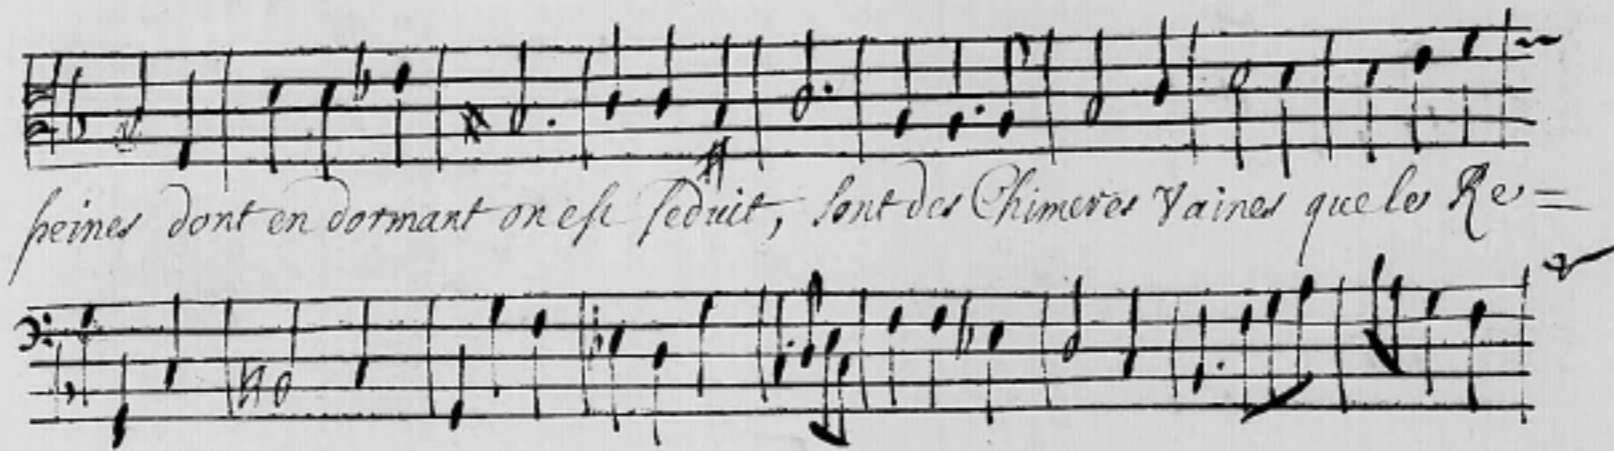 peines dont en dormant on est seduit, sont des Chimeres Vaines que les Re=